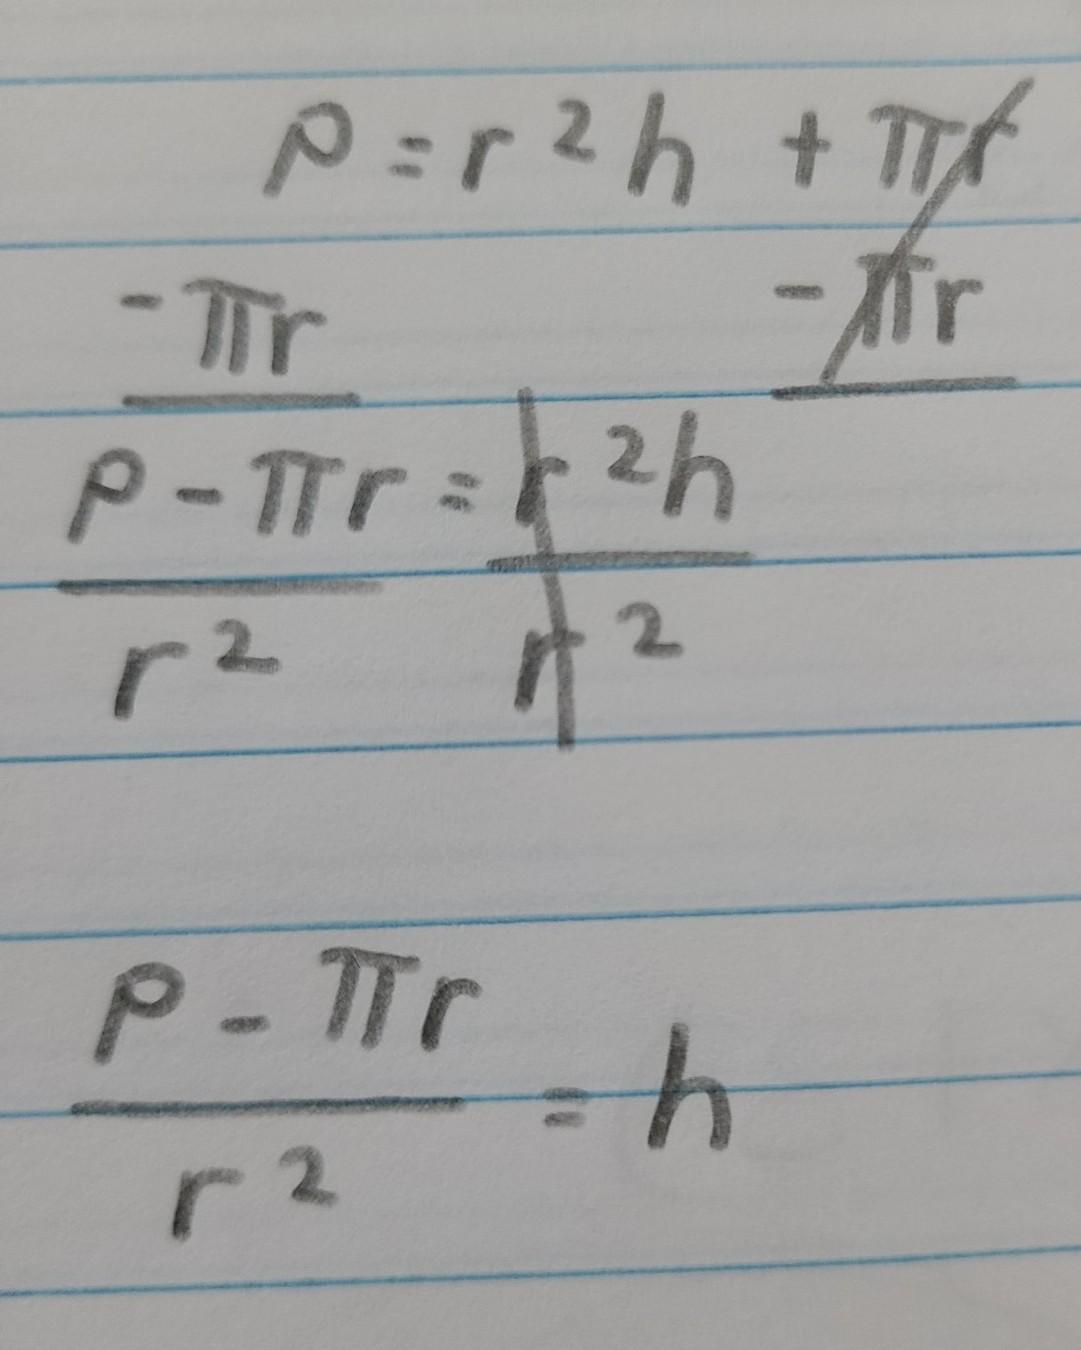 P = r²h + πr
- πr - πr
P - πr = r²h
r² r²
P - πr
= h
r²